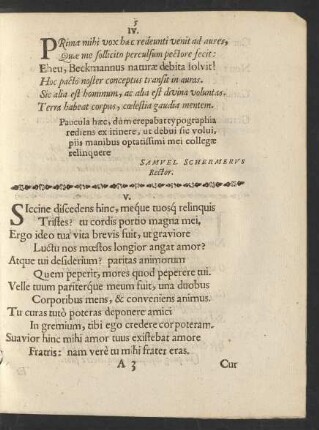 5
IV.
PRima mihi vox hæc redeunti venit ad aures,
Quæ me sollicito perculsum pectore fecit:
Eheu, Beckmannus naturæ debita solvit!
Hoc pacto noster conceptus transit in auras.
Sic alia est hominum, ac alia est divina voluntas.
Terra habeat corpus, cœlestia gaudia mentem.
Paucula hæc, dum crepabat typographia
rediens ex itinere, ut debui sic volui,
piis manibus optatissimi mei collegæ
relinquere
SAMUEL SCHERMERUS
Rector.
V.
SIccine discedens hinc, meque tuosq́ relinquis
Tristes? tu cordis portio magna mei,
Ergo ideo tua vita brevis fuit, ut graviore
Luctu nos mœstos longior angat amor?
Atque tui desiderium? paritas animorum
Quem peperit, mores quod peperere tui.
Velle tuum pariterque meum fuit, una duobus
Corporibus mens, & conveniens animus.
Tu curas tutò poteras deponere amici
In gremium, tibi ego credere cor poteram.
Suavior hinc mihi amor tuus existebat amore
Fratris: nam verè tu mihi frater eras.
A 3 Cur